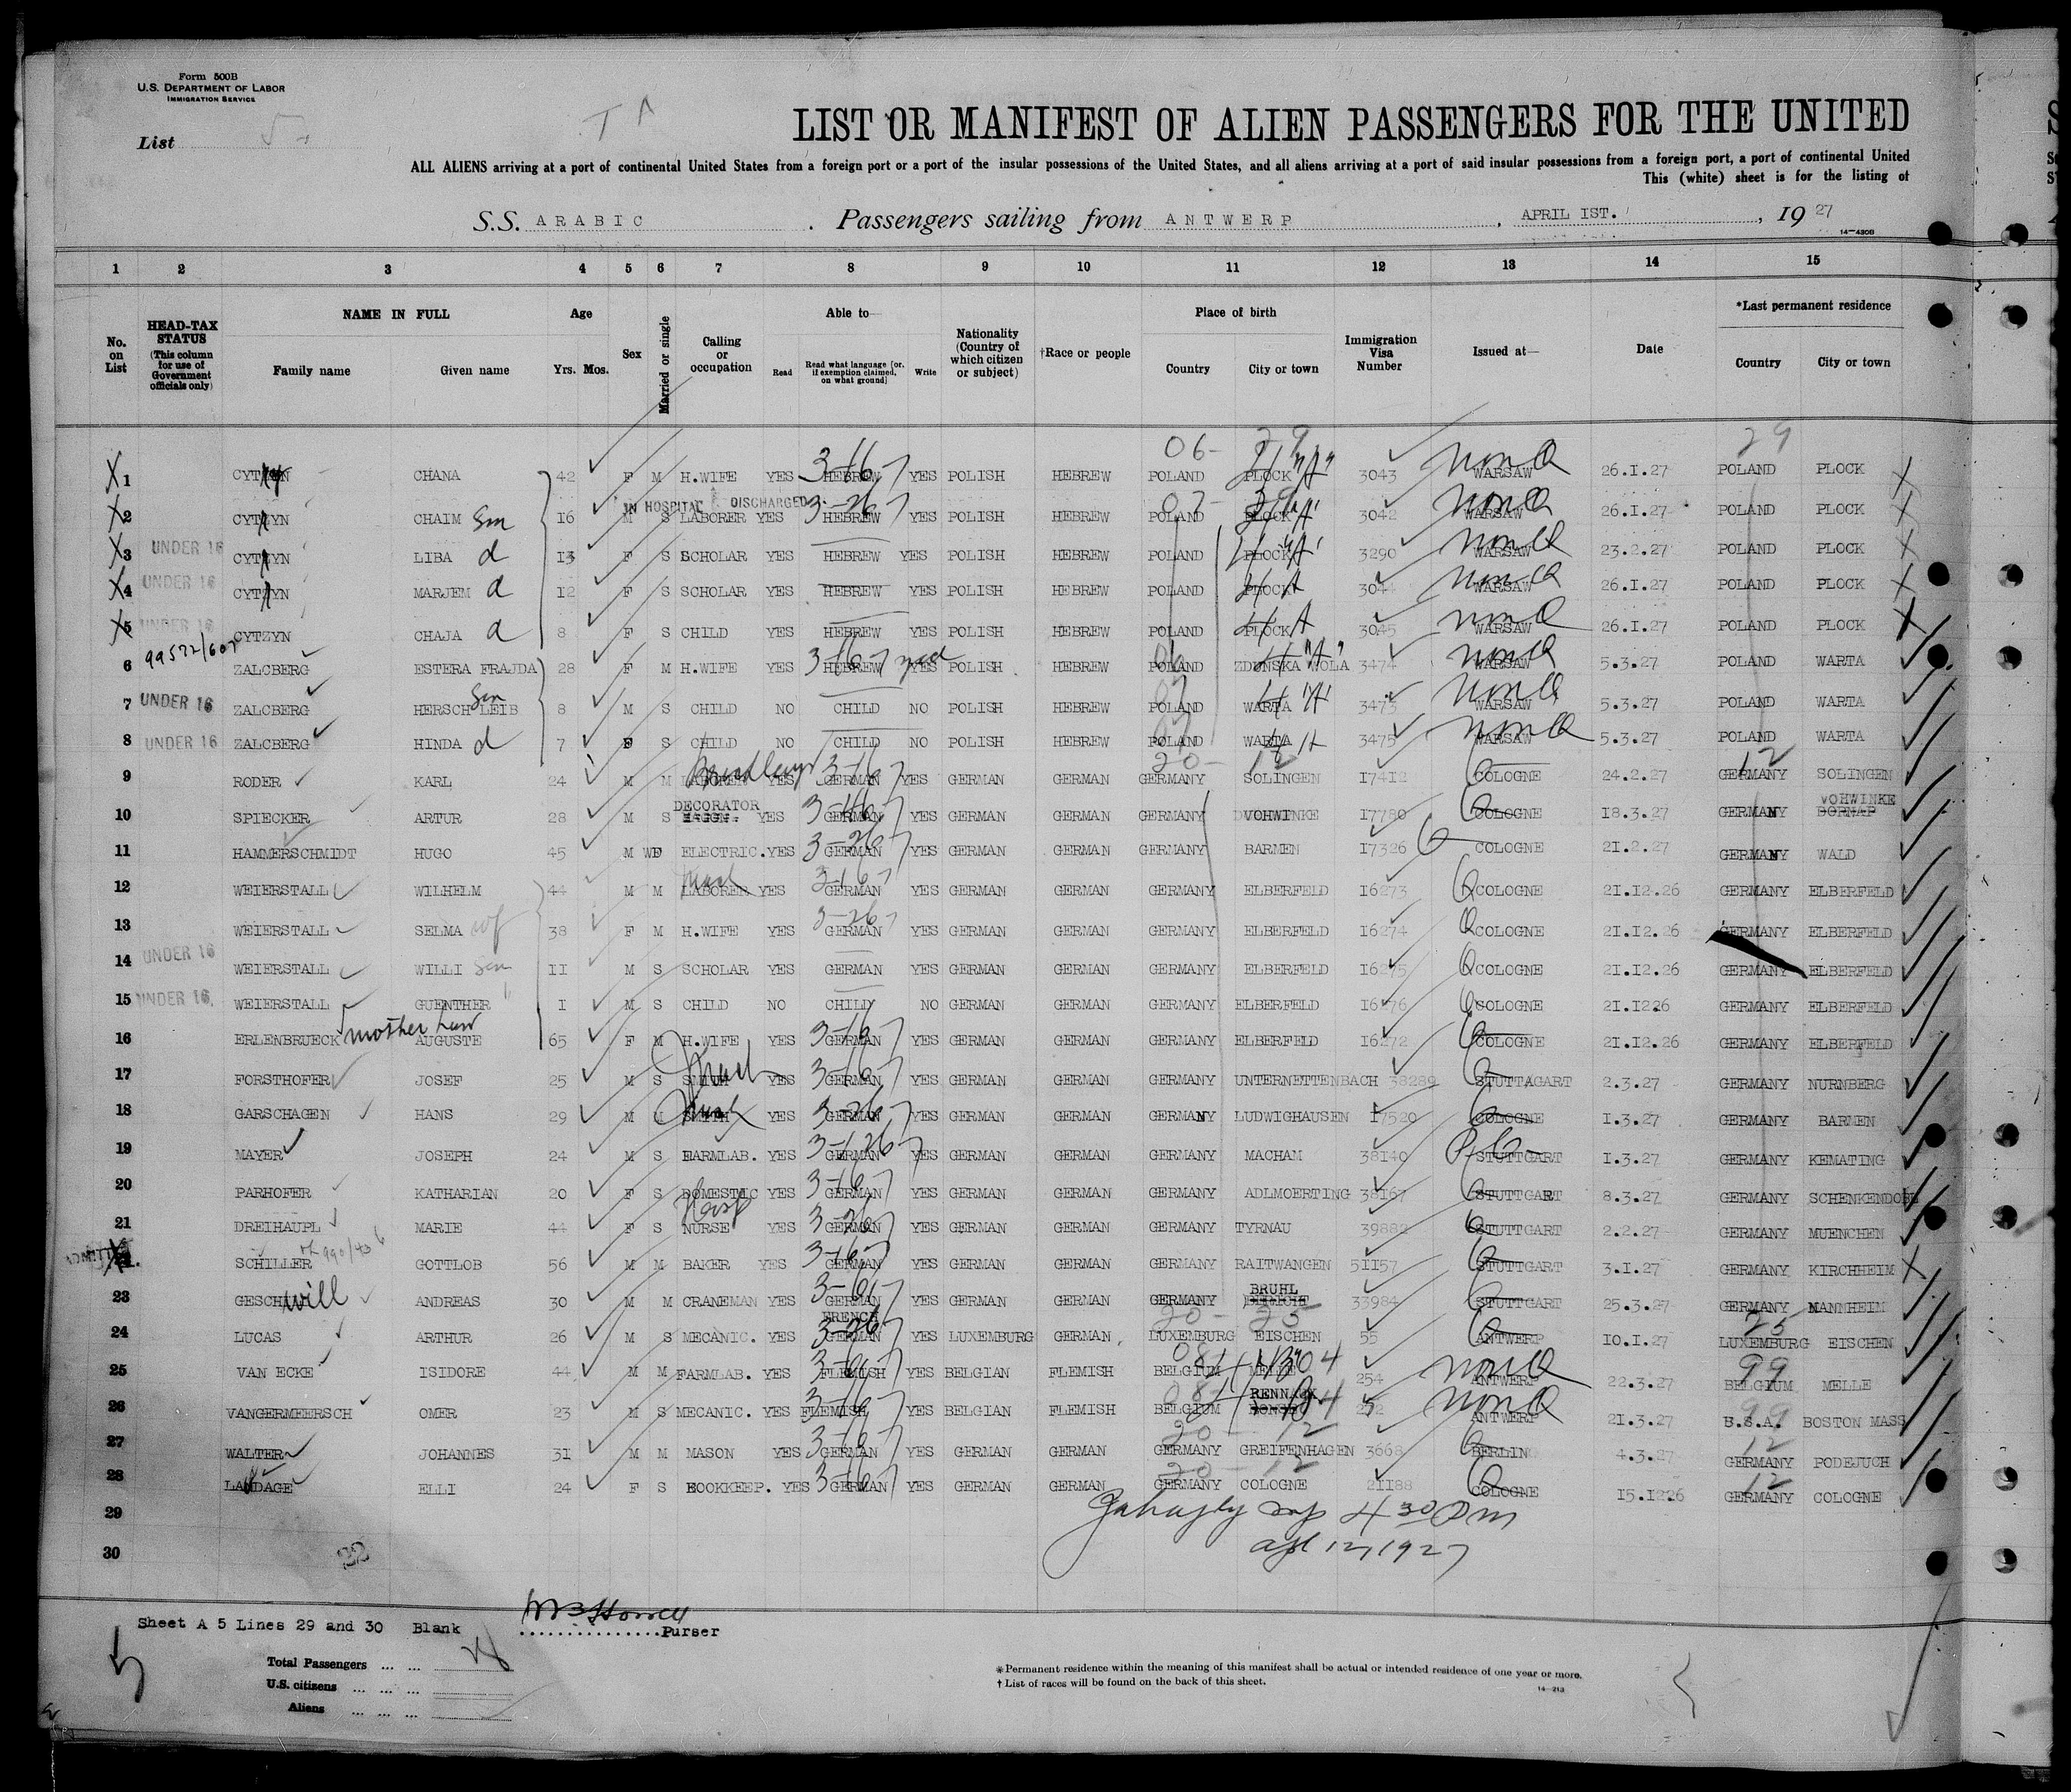 Form 500B
U.S. DEPARTMENT OF LABOR
IMMIGRATION SERVICE
List
LIST OR MANIFEST OF ALIEN PASSENGERS FOR THE UNITED
ALL ALIENS arriving at a port of continental United States from a foreign port or a port of the insular possessions of the United States, and all aliens arriving at a port of said insular possessions from a foreign port, a port of continental United
This (white) sheet is for the listing of
S.S. ARABIC. Passengers sailing from ANTWERP, APRIL 1ST., 1927
14-430B
1 2 3 4 5 6 7 8 9 10 11 12 13 14 15
No. on List
HEAD-TAX STATUS (This column for use of Government officials only)
NAME IN FULL
Family name Given name
Age
Yrs. Mos.
Sex
Married or single
Calling or occupation
Able to—
Read Read what language [or, if exemption claimed, on what ground] Write
Nationality (Country of which citizen or subject)
†Race or people
Place of birth
Country City or town
Immigration Visa Number
Issued at—
Date
*Last permanent residence
Country City or town
1 CHANA 42 F M H.WIFE YES HEBREW YES POLISH HEBREW POLAND PLOCK 3043 WARSAW 26.I.27 POLAND PLOCK
IN HOSPITAL DISCHARGED
2 CHAIM Son 16 M S LABORER YES HEBREW YES POLISH HEBREW POLAND PLOCK 3042 WARSAW 26.I.27 POLAND PLOCK
3 UNDER 16 LIBA d 13 F S SCHOLAR YES HEBREW YES POLISH HEBREW POLAND PLOCK 3290 WARSAW 23.2.27 POLAND PLOCK
4 UNDER 16 MARJEM d 12 F S SCHOLAR YES HEBREW YES POLISH HEBREW POLAND PLOCK 3044 WARSAW 26.I.27 POLAND PLOCK
5 UNDER 16 CYTZYN CHAJA d 8 F S CHILD YES HEBREW YES POLISH HEBREW POLAND PLOCK 3045 WARSAW 26.I.27 POLAND PLOCK
99572/607
6 ZALCBERG ESTERA FRAJDA 28 F M H.WIFE YES HEBREW YES POLISH HEBREW POLAND ZDUNSKA WOLA 3474 WARSAW 5.3.27 POLAND WARTA
7 UNDER 16 ZALCBERG HERSCH LEIB Son 8 M S CHILD NO CHILD NO POLISH HEBREW POLAND WARTA 3473 WARSAW 5.3.27 POLAND WARTA
8 UNDER 16 ZALCBERG HINDA d 7 F S CHILD NO CHILD NO POLISH HEBREW POLAND WARTA 3475 WARSAW 5.3.27 POLAND WARTA
9 RODER KARL 24 M M LABORER YES GERMAN YES GERMAN GERMAN GERMANY SOLINGEN 17412 COLOGNE 24.2.27 GERMANY SOLINGEN
10 SPIECKER ARTUR 28 M S DECORATOR YES GERMAN YES GERMAN GERMAN GERMANY VOHWINKE 17780 COLOGNE 18.3.27 GERMANY VOHWINKE
11 HAMMERSCHMIDT HUGO 45 M WD ELECTRIC. YES GERMAN YES GERMAN GERMAN GERMANY BARMEN 17326 COLOGNE 21.2.27 GERMANY WALD
12 WEIERSTALL WILHELM 44 M M LABORER YES GERMAN YES GERMAN GERMAN GERMANY ELBERFELD 16273 COLOGNE 21.12.26 GERMANY ELBERFELD
13 WEIERSTALL SELMA wf 38 F M H.WIFE YES GERMAN YES GERMAN GERMAN GERMANY ELBERFELD 16274 COLOGNE 21.12.26 GERMANY ELBERFELD
14 UNDER 16 WEIERSTALL WILLI Son 11 M S SCHOLAR YES GERMAN YES GERMAN GERMAN GERMANY ELBERFELD 16275 COLOGNE 21.12.26 GERMANY ELBERFELD
15 UNDER 16. WEIERSTALL GUENTHER 1 M S CHILD NO CHILD NO GERMAN GERMAN GERMANY ELBERFELD 16276 COLOGNE 21.1226 GERMANY ELBERFELD
16 ERLENBRUECK mother law AUGUSTE 65 F M H.WIFE YES GERMAN YES GERMAN GERMAN GERMANY ELBERFELD 16272 COLOGNE 21.12.26 GERMANY ELBERFELD
17 FORSTHOFER JOSEF 25 M S SMITH YES GERMAN YES GERMAN GERMAN GERMANY UNTERNETTENBACH 38289 STUTTAGART 2.3.27 GERMANY NURNBERG
18 GARSCHAGEN HANS 29 M M SMITH YES GERMAN YES GERMAN GERMAN GERMANY LUDWIGHAUSEN 17520 COLOGNE 1.3.27 GERMANY BARMEN
19 MAYER JOSEPH 24 M S FARMLAB. YES GERMAN YES GERMAN GERMAN GERMANY MACHAM 38140 STUTTGART 1.3.27 GERMANY KEMATING
20 PARHOFER KATHARIAN 20 F S DOMESTIC YES GERMAN YES GERMAN GERMAN GERMANY ADLMOERTING 38167 STUTTGART 8.3.27 GERMANY
21 DREIHAUPL MARIE 44 F S NURSE YES GERMAN YES GERMAN GERMAN GERMANY TYRNAU 39882 STUTTGART 2.2.27 GERMANY MUENCHEN
SCHILLER GOTTLOB 56 M M BAKER YES GERMAN YES GERMAN GERMAN GERMANY RAITWANGEN 51157 STUTTGART 3.I.27 GERMANY KIRCHHEIM
23 GESCHwill ANDREAS 30 M M CRANEMAN YES GERMAN YES GERMAN GERMAN GERMANY BRUHL 33984 STUTTGART 25.3.27 GERMANY MANNHEIM
24 LUCAS ARTHUR 26 M S MECANIC. YES FRENCH GERMAN YES LUXEMBURG GERMAN LUXEMBURG EISCHEN 55 ANTWERP 10.I.27 LUXEMBURG EISCHEN
25 VAN ECKE ISIDORE 44 M M FARMLAB. YES FLEMISH YES BELGIAN FLEMISH BELGIUM MELLE 254 ANTWERP 22.3.27 BELGIUM MELLE
26 VANGERMEERSCH OMER 23 M S MECANIC. YES FLEMISH YES BELGIAN FLEMISH BELGIUM ANTWERP 21.3.27 U.S.A. BOSTON MASS
27 WALTER JOHANNES 31 M M MASON YES GERMAN YES GERMAN GERMAN GERMANY GREIFENHAGEN 3668 BERLIN 4.3.27 GERMANY PODEJUCH
28 ELLI 24 F S BOOKKEEP. YES GERMAN YES GERMAN GERMAN GERMANY COLOGNE 21188 COLOGNE 15.1226 GERMANY COLOGNE
29
30
4 30 Pm
apl 12, 1927
22
Sheet A 5 Lines 29 and 30 Blank
Purser
Total Passengers
U.S. citizens
Aliens
*Permanent residence within the meaning of this manifest shall be actual or intended residence of one year or more.
† List of races will be found on the back of this sheet.
14-213